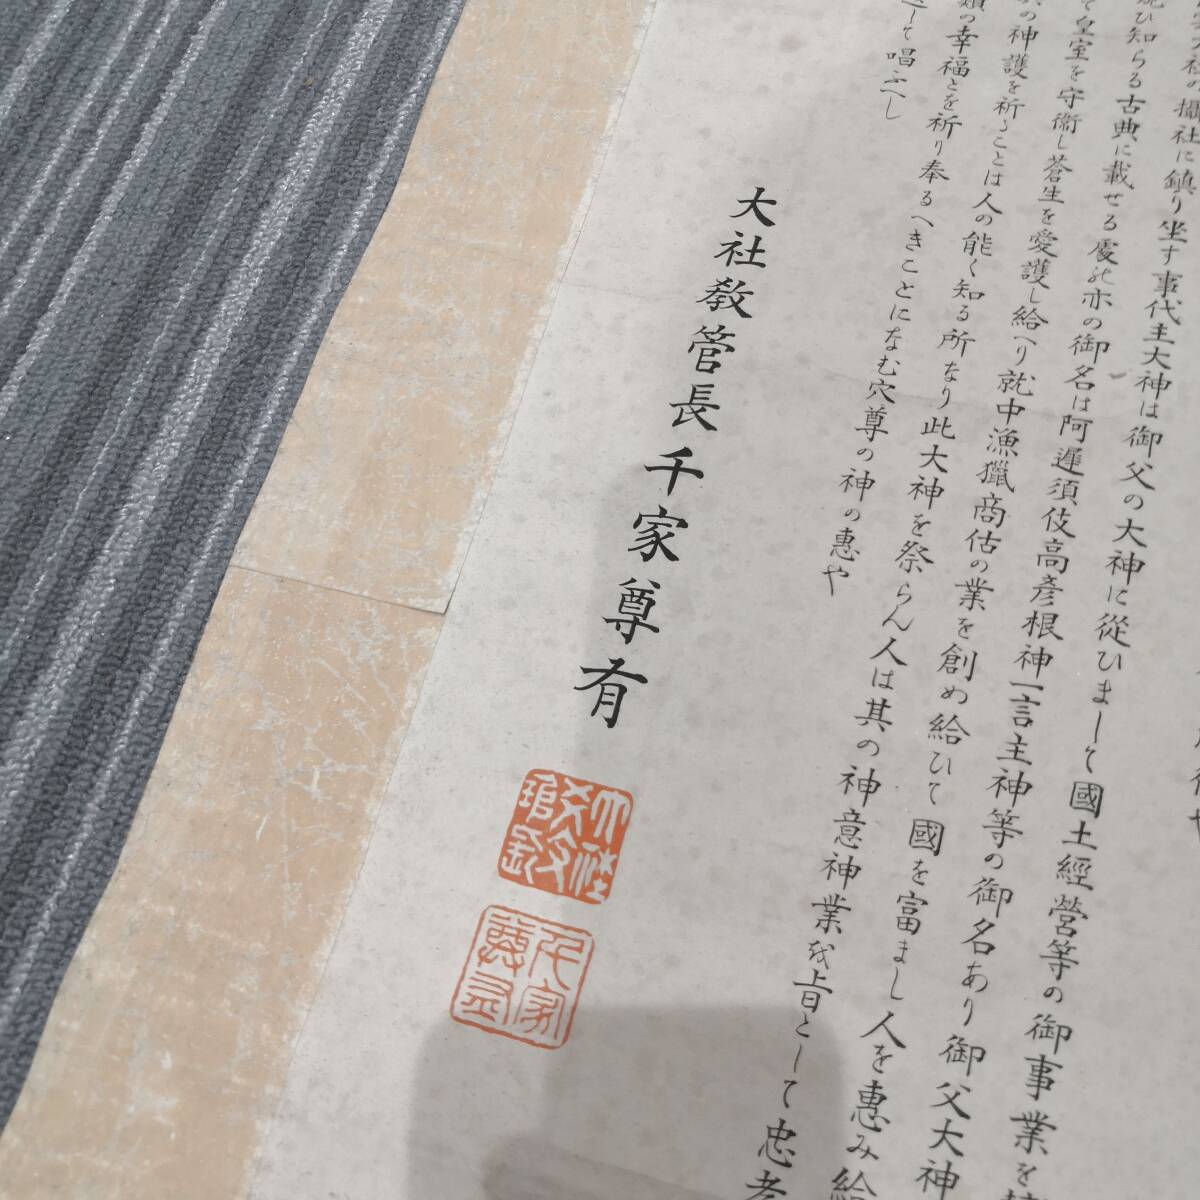 社の攝社に鎮り坐す事代主大神は御父の大神に從ひまして國土經營等の御事業を
ひ知らる古典に載せる處亦の御名は阿遲須伎高彦根神一言主神等の御名あり御父大神
て皇室を守衞し蒼生を愛護し給へり就中漁獵商估の業を創め給ひて國を富まし人を惠み給
の神護を祈ることは人の能く知る所なり此大神を祭らん人は其の神意神業を旨として忠孝
類の幸福とを祈り奉るへきことになむ穴尊の神の惠や
して唱ふへし
大社教管長千家尊有
大社教管長印
千家尊有